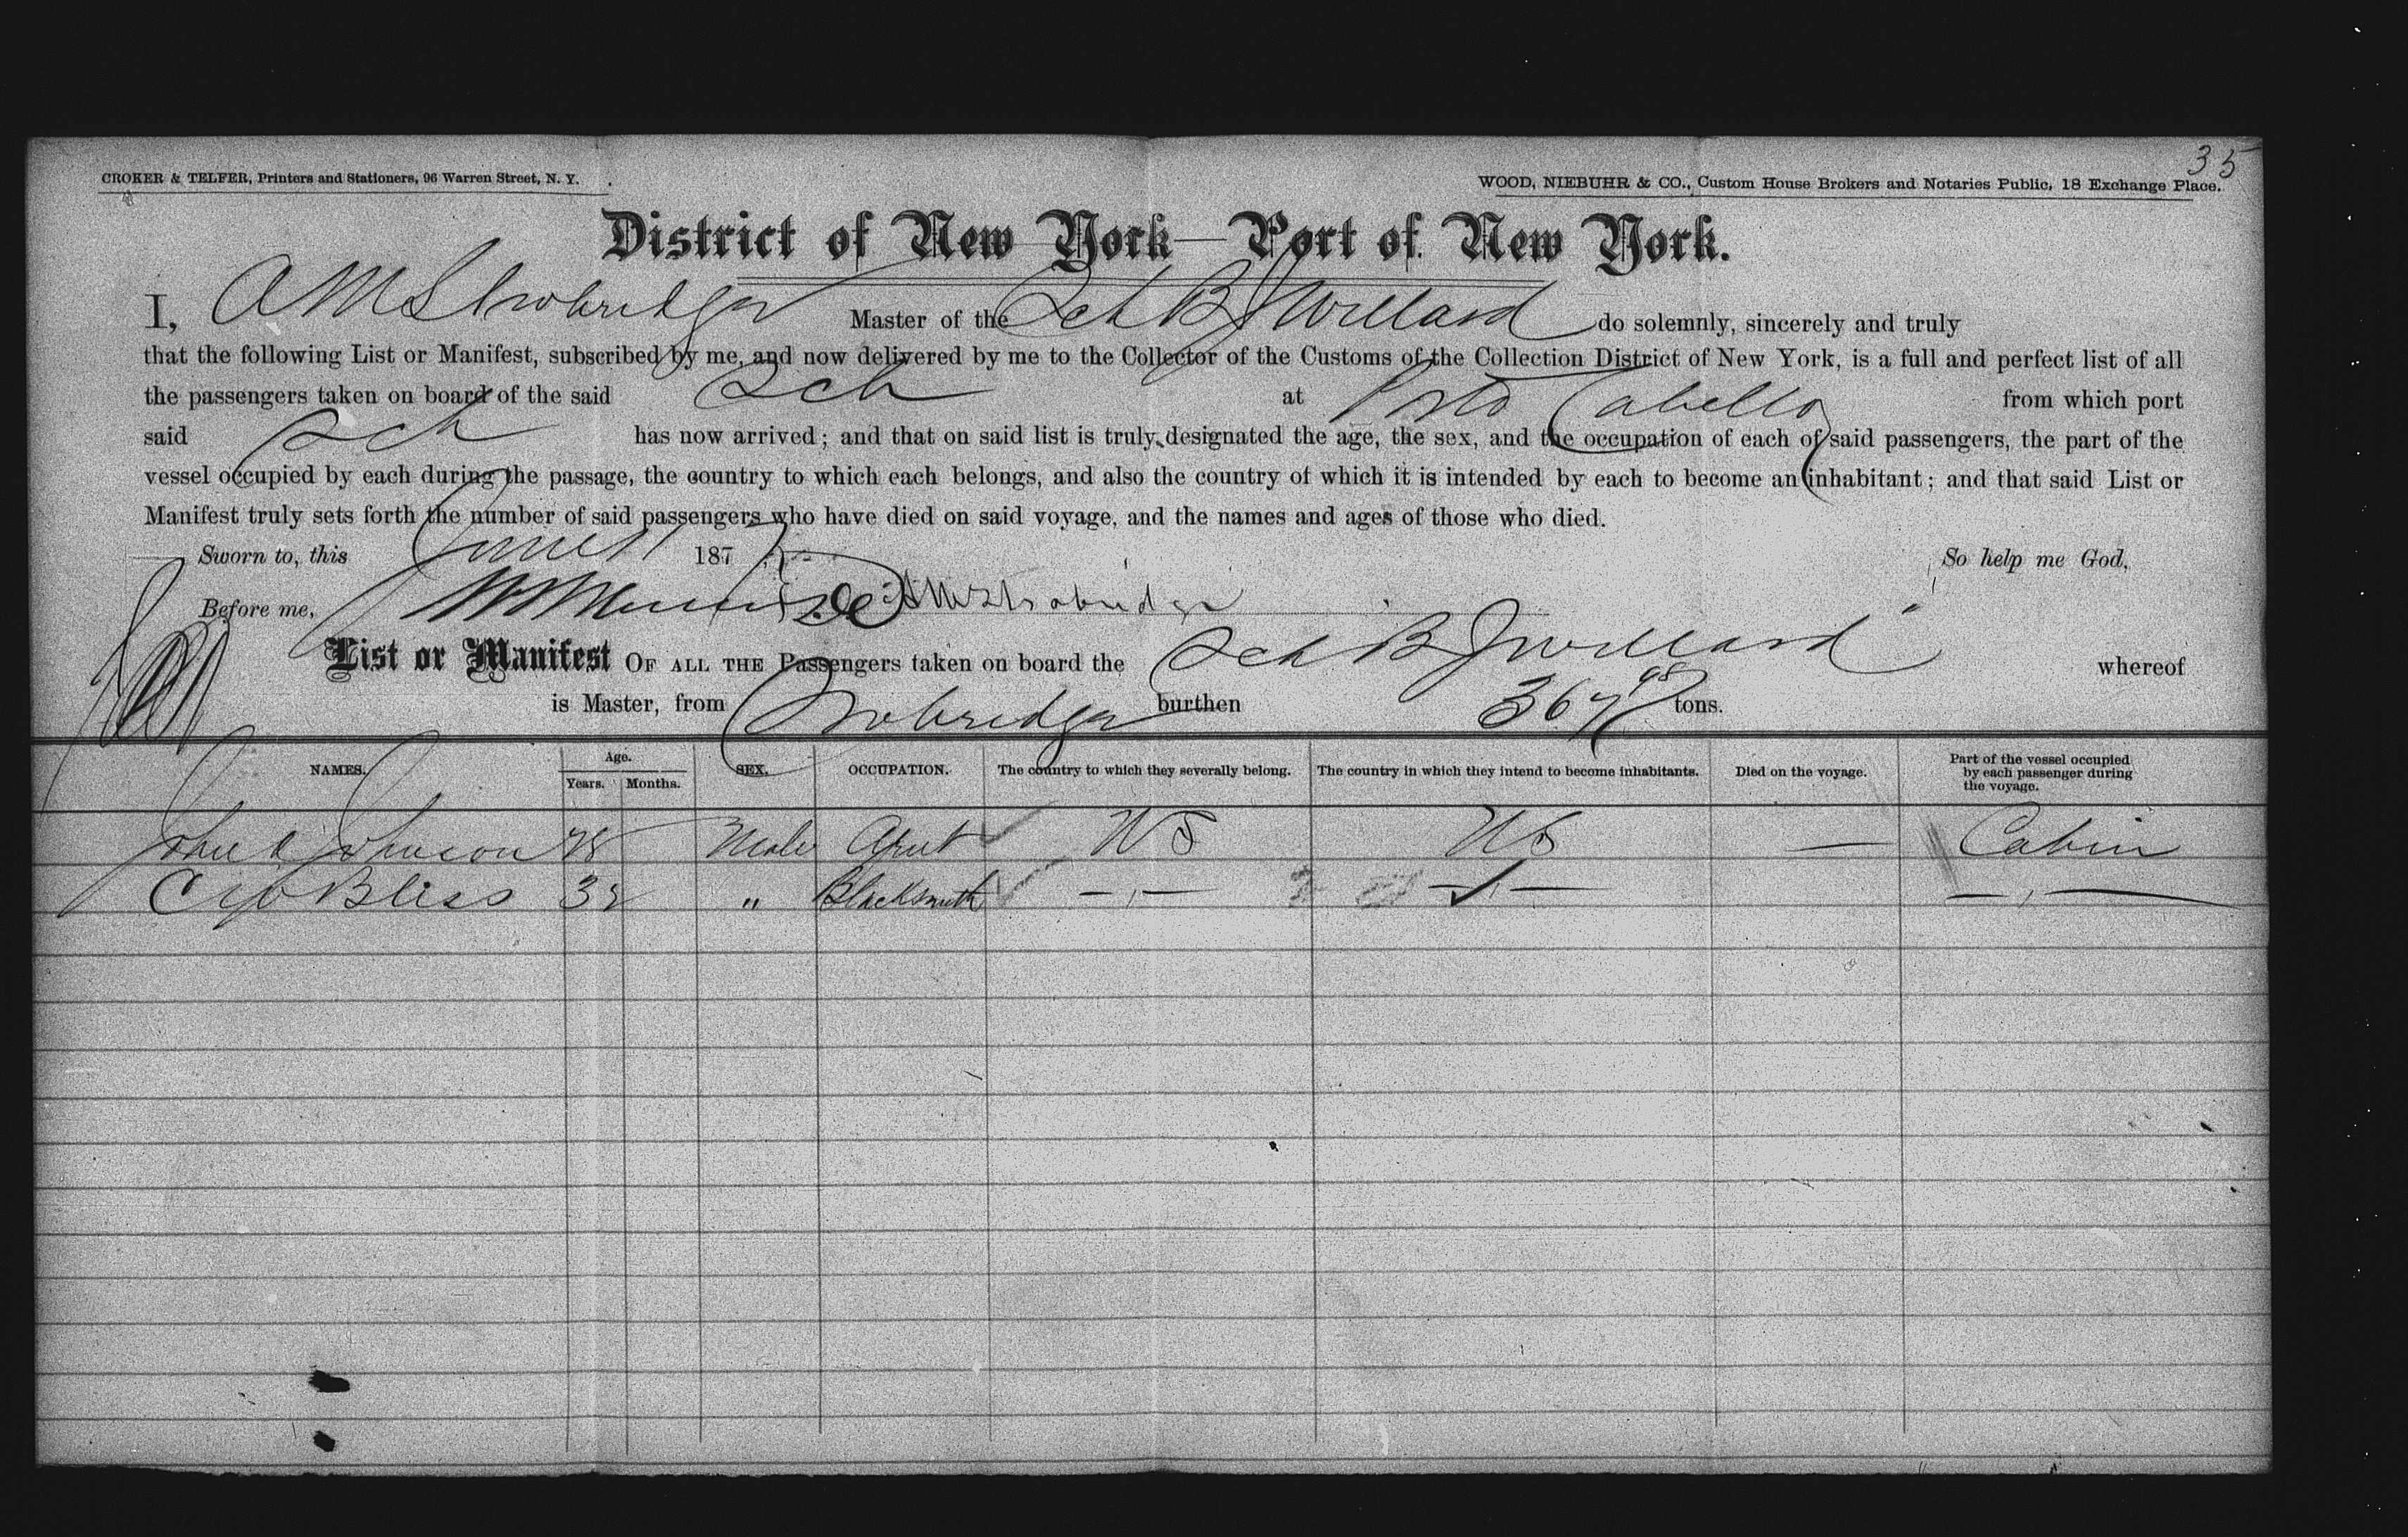 35
CROKER & TELFER, Printers and Stationers, 96 Warren Street, N. Y.
WOOD, NIEBUHR & CO., Custom House Brokers and Notaries Public, 18 Exchange Place.
District of New York—Port of New York.
I, A M Strobridge Master of the Sch B J Willard do solemnly, sincerely and truly
that the following List or Manifest, subscribed by me, and now delivered by me to the Collector of the Customs of the Collection District of New York, is a full and perfect list of all
the passengers taken on board of the said Sch at Porto Cabello from which port
said Sch has now arrived; and that on said list is truly designated the age, the sex, and the occupation of each of said passengers, the part of the
vessel occupied by each during the passage, the country to which each belongs, and also the country of which it is intended by each to become an inhabitant; and that said List or
Manifest truly sets forth the number of said passengers who have died on said voyage, and the names and ages of those who died.
Sworn to, this June 187 So help me God,
Before me, A M Strobridge
List or Manifest OF ALL THE Passengers taken on board the Sch B J Willard whereof
Strobridge is Master, from burthen 367 tons.
NAMES. Age. Years. Months. SEX. OCCUPATION. The country to which they severally belong. The country in which they intend to become inhabitants. Died on the voyage. Part of the vessel occupied by each passenger during the voyage.
Johnson Male Agent US US — Cabin
Bliss 32 " Blacksmith — " — — " — — " —